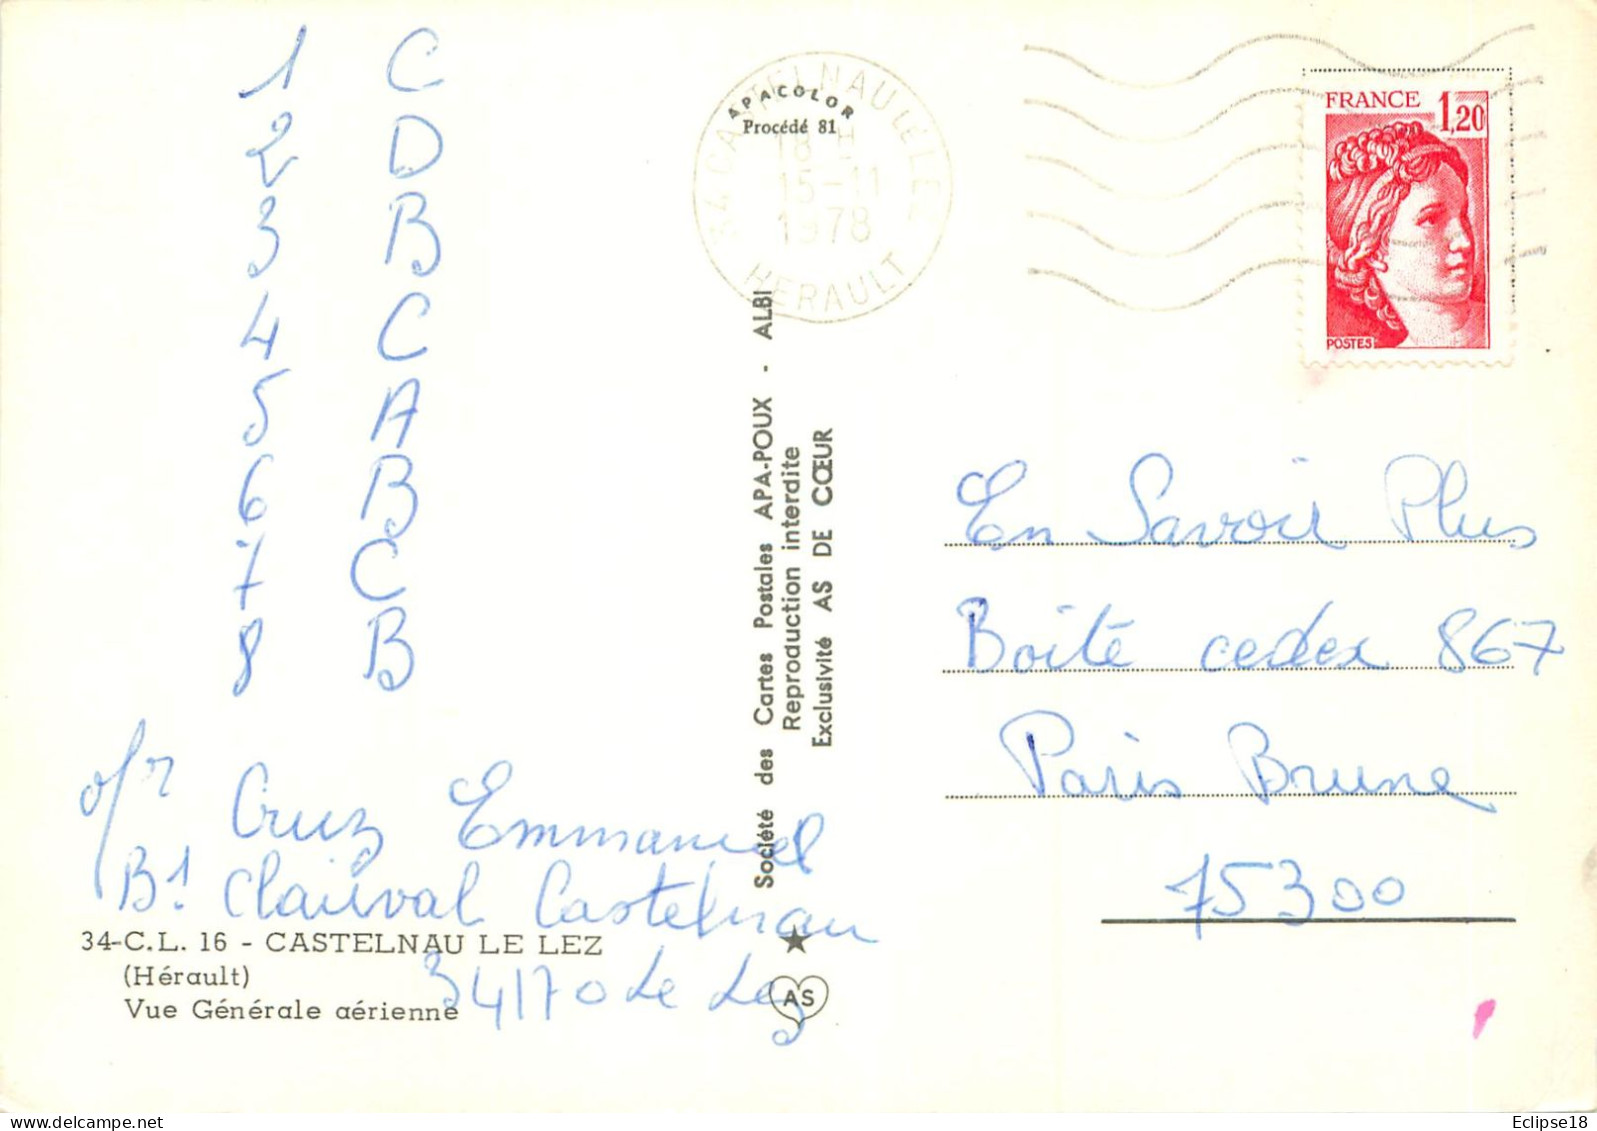 1 C
2 D
3 B
4 C
5 A
6 B
7 C
8 B
Cruz Emmanuel
Bt Clairval Castelnau
34170 Le Lez
34-C.L. 16 - CASTELNAU LE LEZ
(Hérault)
Vue Générale aérienne
APACOLOR
Procédé 81
34 CASTELNAU LE LEZ
18 H
15-11
1978
HERAULT
Société des Cartes Postales APA-POUX - ALBI
Reproduction interdite
Exclusivité AS DE CŒUR
AS
FRANCE 1,20
POSTES
En Savoir Plus
Boîte cedex 867
Paris Brune
75300
Eclipse18